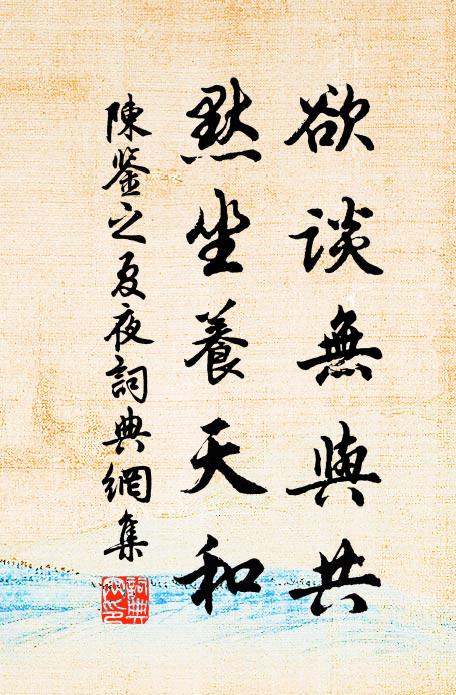 欲談無與共
默坐養天和
陳鑒之夏夜詞典網集